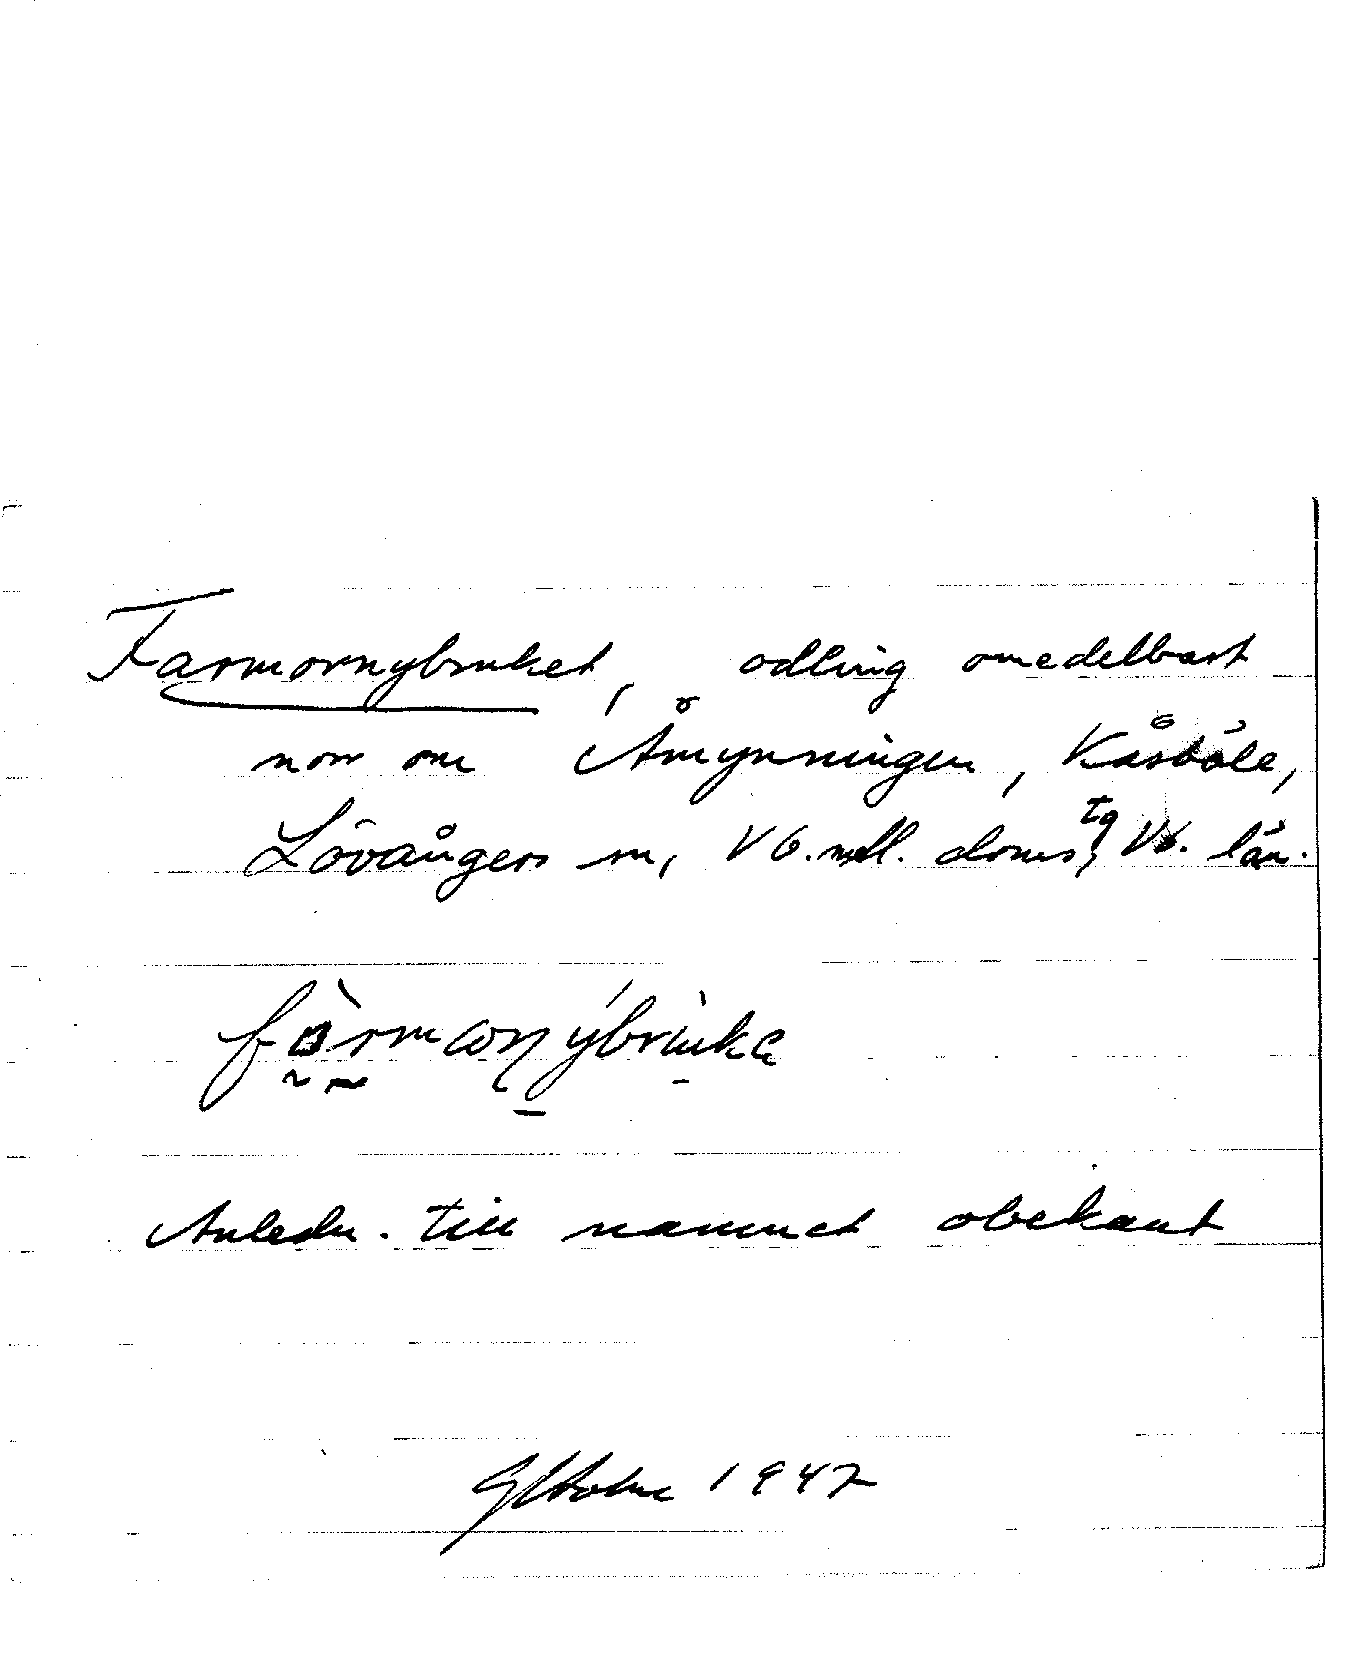 Farmornybruket, odling omedelbart
norr om Åmynningen, Kåsböle,
Lövångers sn, Vb. mell. doms tg, Vb. län.
Anledn. till namnet obekant
1947